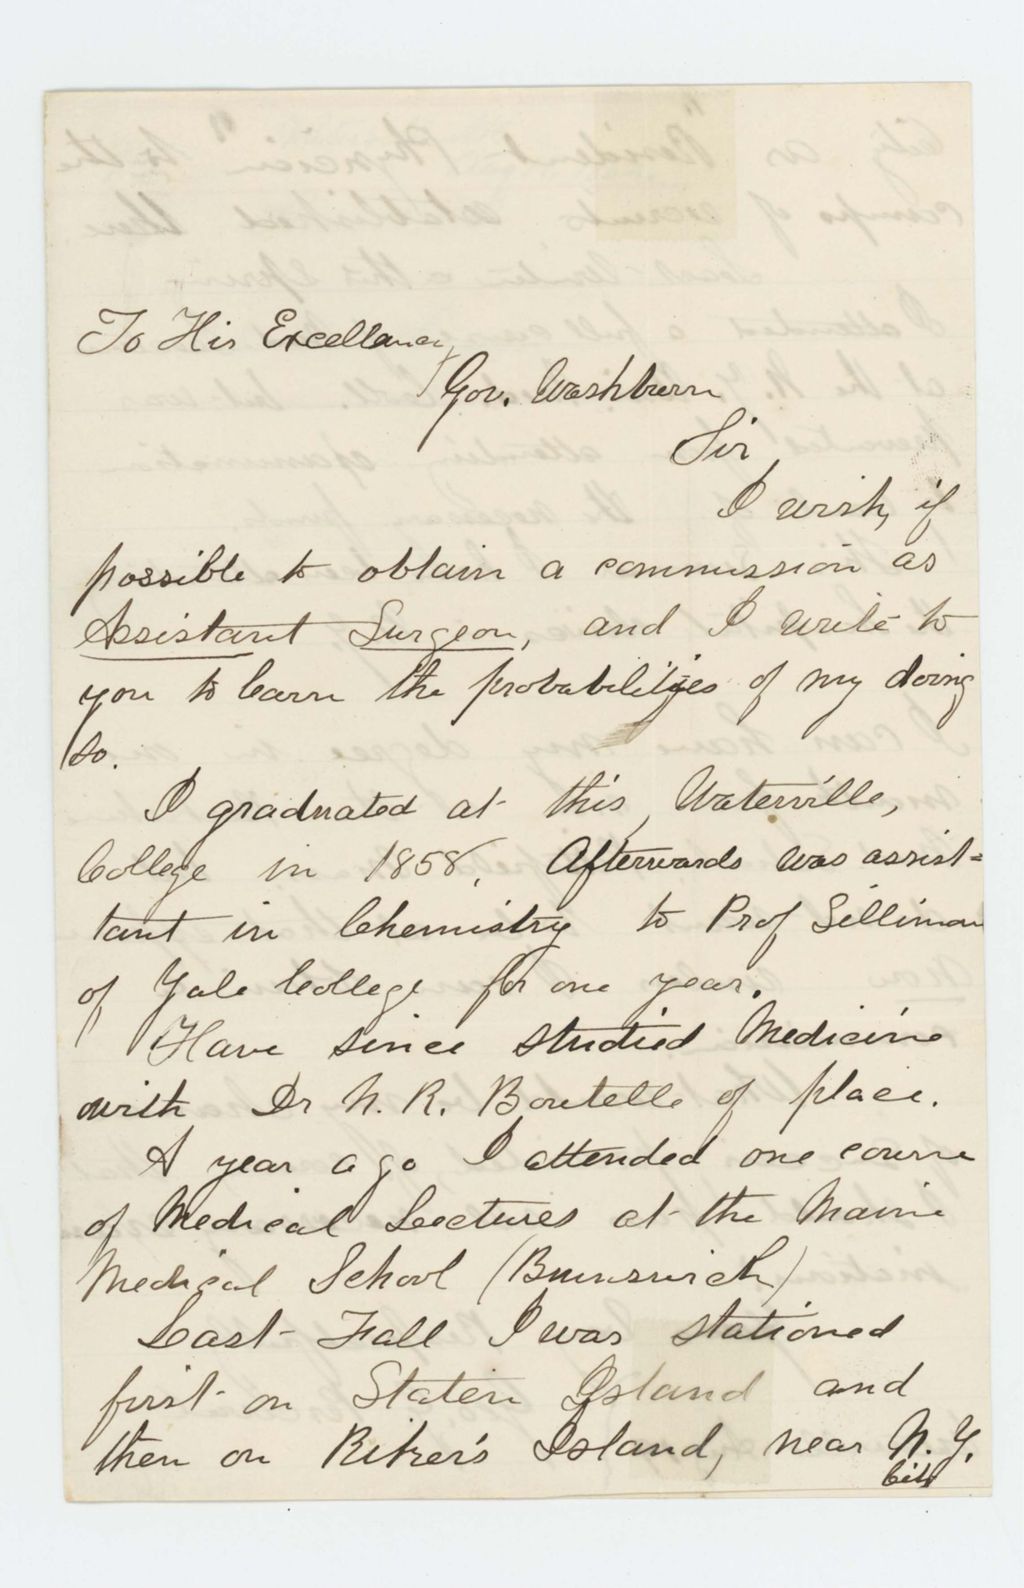 To His Excellancy,
Gov. Washburn
Sir
I wish, if
possible to obtain a commission as
Assistant Surgeon, and I write to
you to learn the probabilities of my doing
so.
I graduated at this, Waterville,
College in 1858. Afterwards was assist=
tant in Chemistry to Prof Silliman
of Yale College for one year.
Have since studied Medicine
with Dr N. R. Boutelle of place.
A year ago I attended one course
of Medical Lectures at the Maine
Medical School (Brunswick)
Last Fall I was stationed
first on Staten Island and
then on Riker's Island, near N.Y.
City